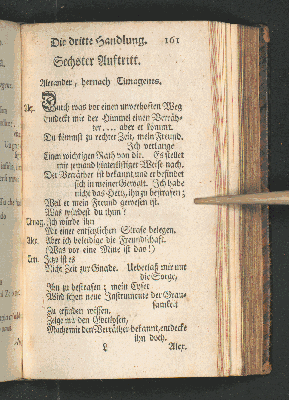 Die dritte Handlung. 161
Sechster Auftritt.
Alexander, hernach Timagenes.
Alex. Durch was vor einen unverhofften Weg
endeckt mir der Himmel einen Verräh-
ter.... aber er kömmt.
Du kömmst zu rechter Zeit, mein Freund.
Ich verlange
Einen wichtigen Rath von dir. Es stellet
mir jemand hinterlistiger Weise nach.
Der Verräther ist bekannt, und er befindet
sich in meiner Gewalt. Ich habe
nicht das Hertz, ihn zu bestrafen;
Weil er mein Freund gewesen ist.
Was würdest du thun?
Timag. Ich würde ihn
Mit einer entsetzlichen Strafe belegen.
Alex. Aber ich beleidige die Freundschaft.
(Was vor eine Mine ist das!)
Tim. Jetzo ist es
Nicht Zeit zur Gnade. Ueberlaß mir nur
die Sorge,
Ihn zu bestrafen; mein Eyfer
Wird schon neue Instrumente der Grau-
samkeit
Zu erfinden wissen.
Zeige mir den Gottlosen,
Mache mir den Verräther bekannt, entdecke
ihn doch.
L Alex.